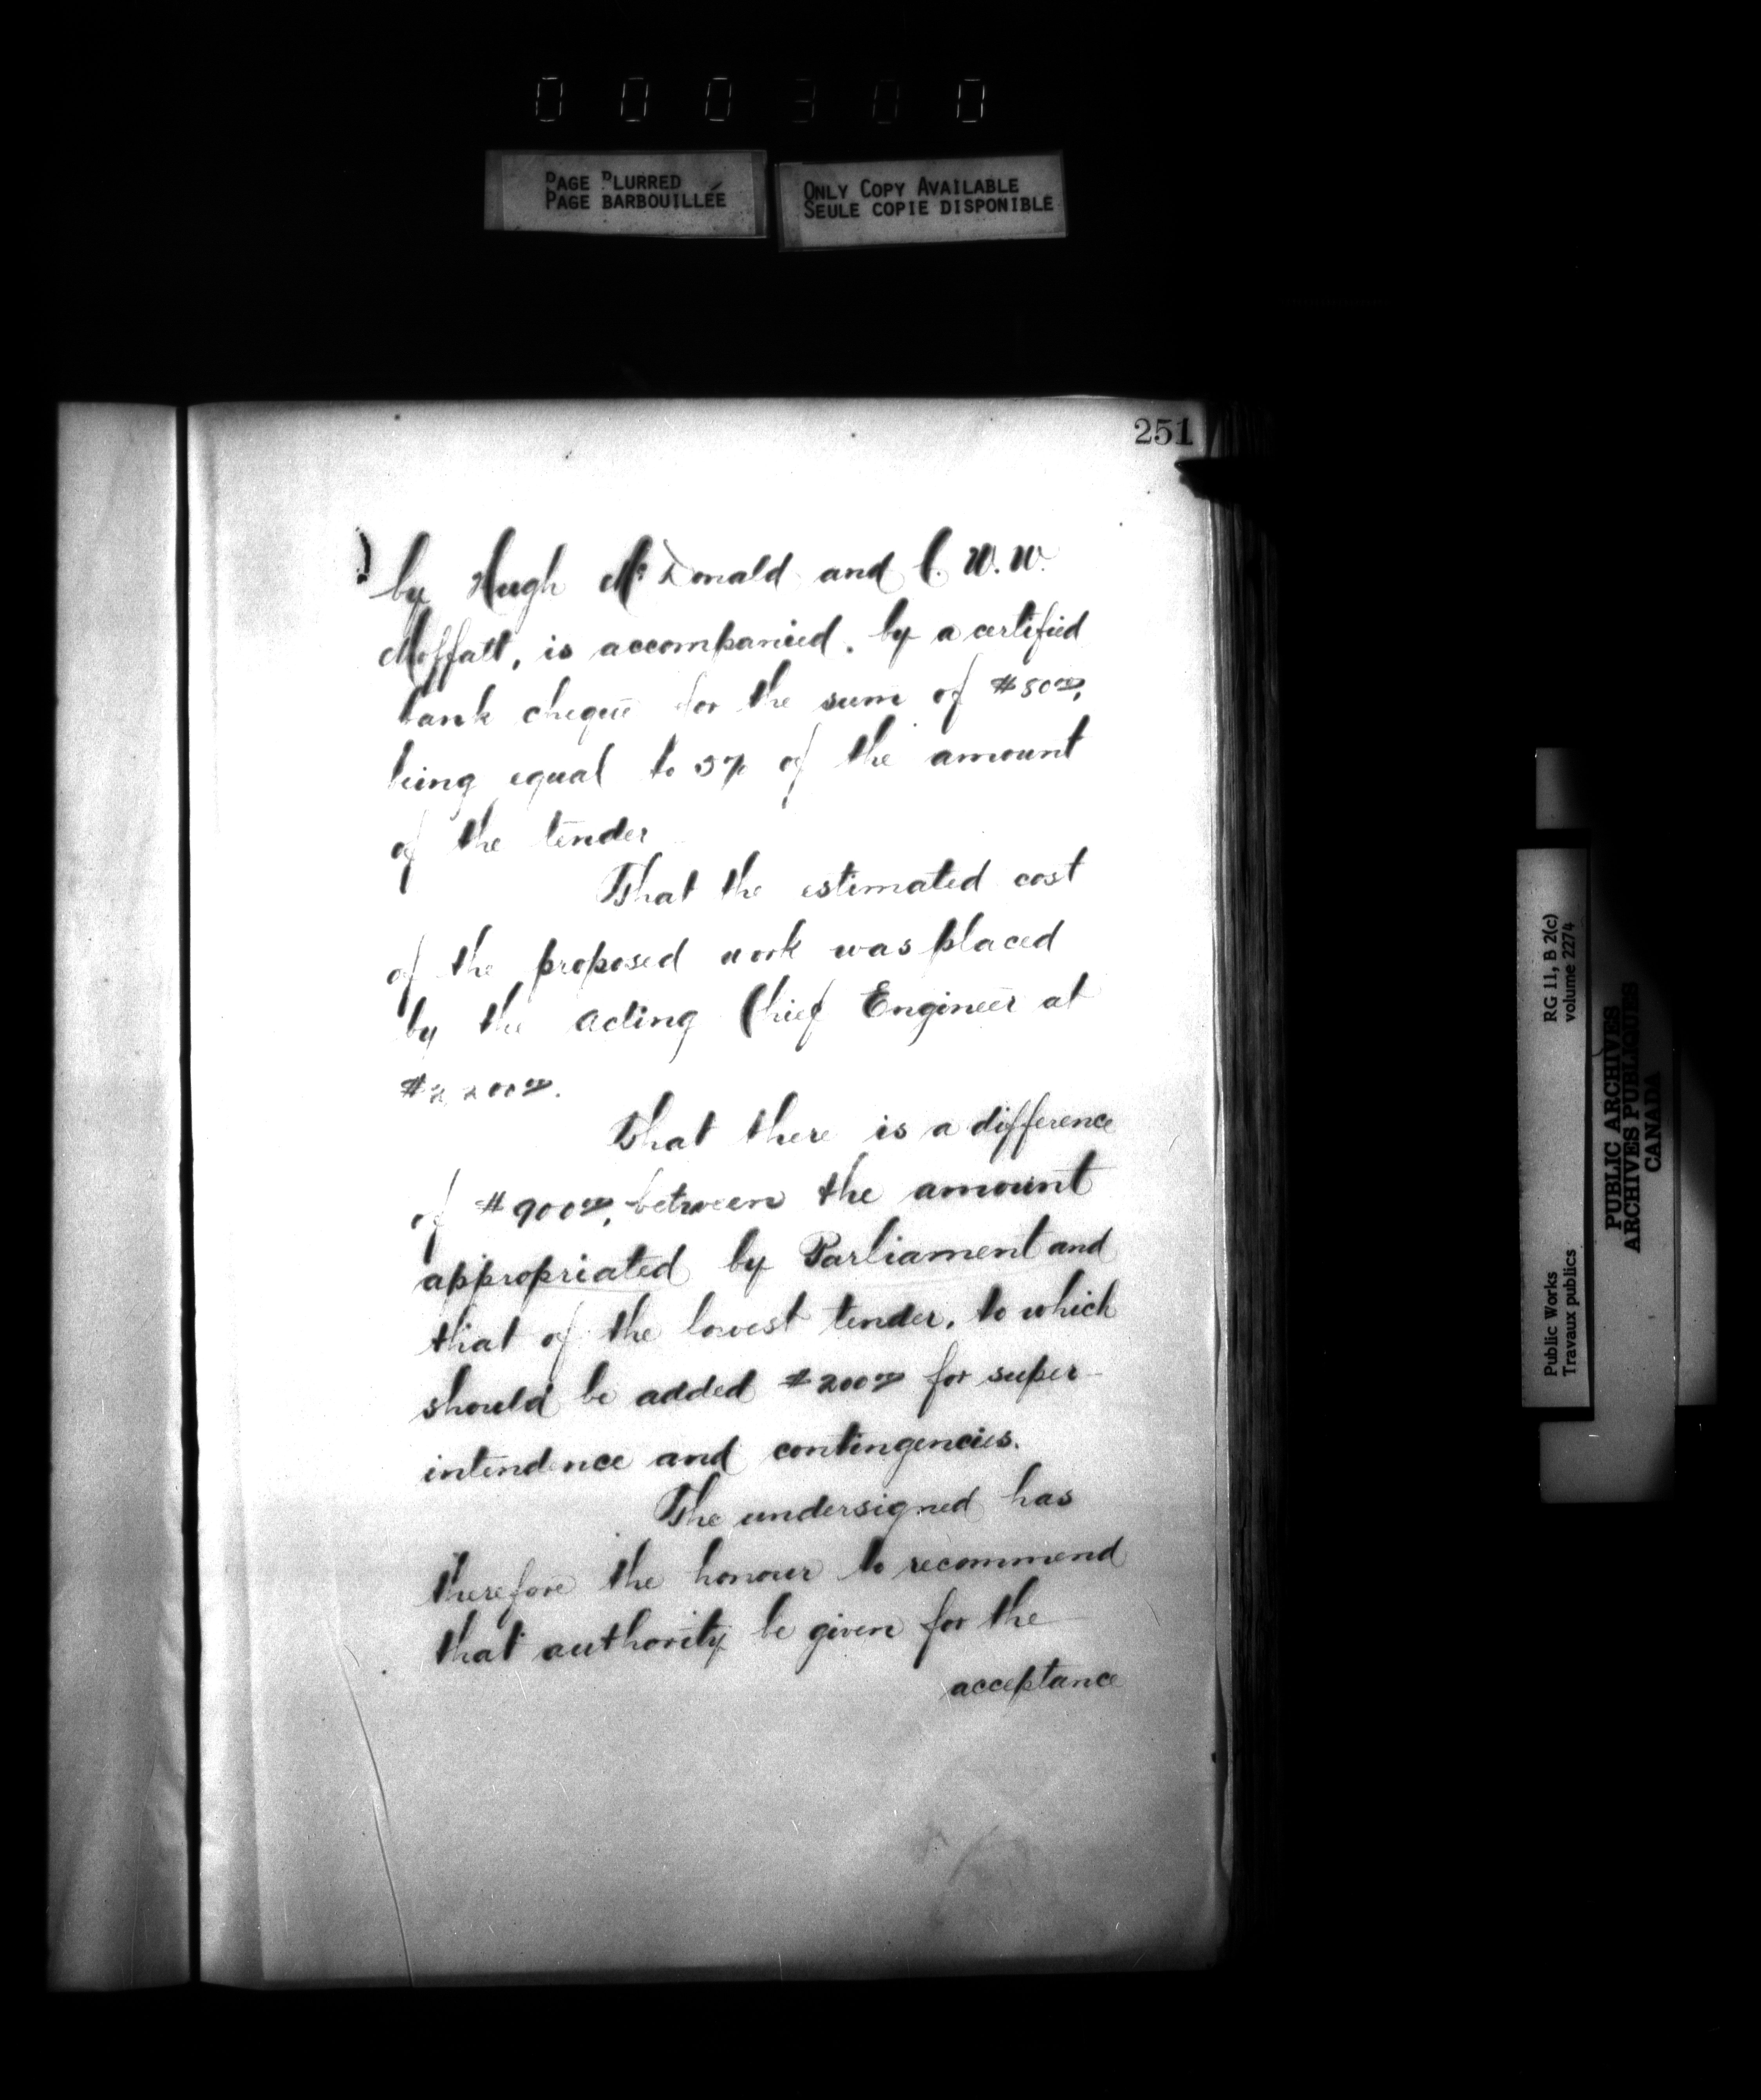 000300
PAGE BLURRED
PAGE BARBOUILLÉE
ONLY COPY AVAILABLE
SEULE COPIE DISPONIBLE
251
by Hugh McDonald and C. W. W.
Moffatt, is accompanied, by a certified
bank cheque for the sum of
being equal to 5% of the amount
of the tender
That the estimated cost
of the proposed work was placed
by the acting Chief Engineer at
$2,200.00.
That there is a difference
of $900.00, between the amount
appropriated by Parliament and
that of the lowest tender, to which
should be added $200.00 for super-
intendence and contingencies.
The undersigned has
therefore the honour to recommend
that authority be given for the
acceptance
Public Works RG 11, B 2(c)
Travaux publics volume 2274
PUBLIC ARCHIVES
ARCHIVES PUBLIQUES
CANADA